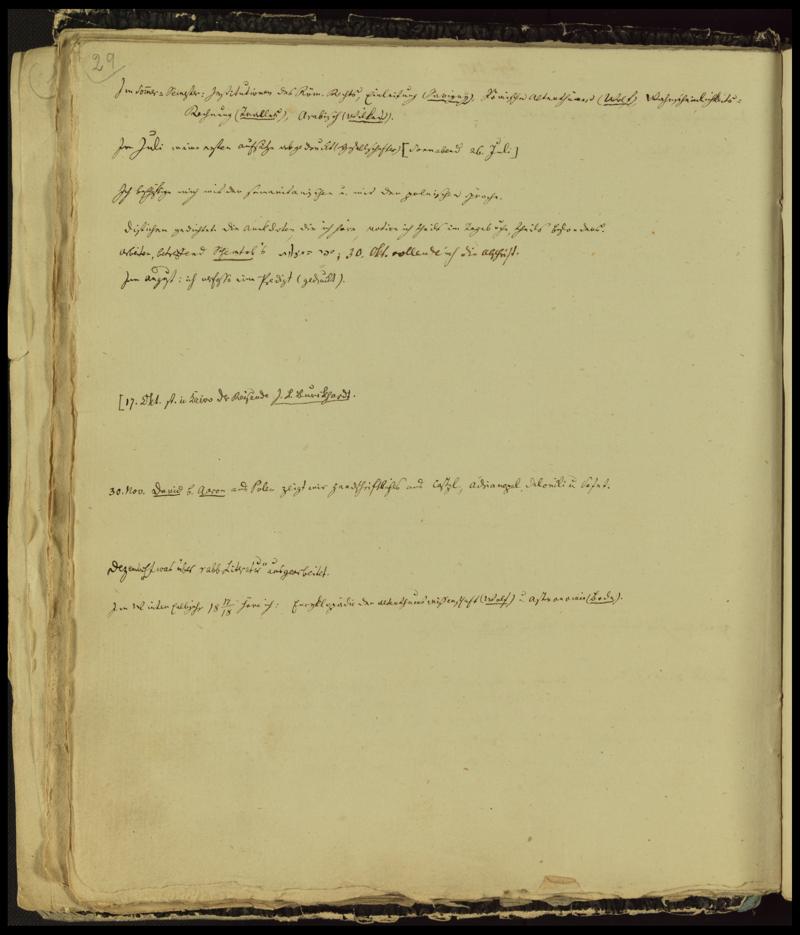 29
Im Sommer-Semester: Institutionen des Röm. Rechts, Einleitung (Savigny), Römische Alterthümer (Wolf) Wahrscheinlichkeits-
Rechnung (Tralles), Arabisch (Wilken).
Im Juli meine ersten Aufsätze abgedruckt (Gesellschafter) [Sonnabend 26. Juli]
Ich beschäftige mich mit der samaritanischen u. mit der polnischen Sprache.
Distichen gedichtet. Die Anekdoten die ich höre, notire ich theils im Tagebuche, theils besonders.
Arbeiten, betreffend Schemtob's; 30. Okt. vollende ich die Abschrift.
Im August: ich verfasste eine Predigt (gedruckt).
[17. Okt. st. in Cairo der Reisende J. L. Burckhardt.
30. Nov. David b. Aaron aus Polen zeigt mir Handschriftliches aus Costpl, Adrianopel, u. Safet.
Dezember etwas über rabb. Literatur ausgearbeitet.
Im Winterhalbjahr 18 17/18 höre ich: Encyklopädie der Alterthumswissenschaft (Wolf) u Astronomie (Bode).